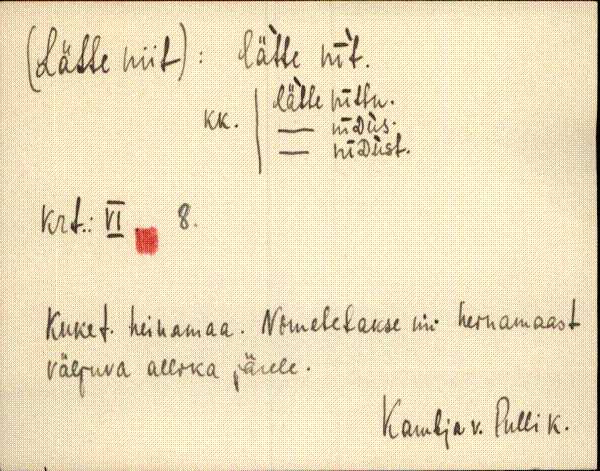 (Lätte niit): lätte nīt.
kk. lätte nīttu.
— nīDùs.
— nīDùst.
krt.: VI 8.
Kuket. heinamaa. Nimetetakse nii heinamaast
väljuva allika järele.
Kambja v. Pulli k.